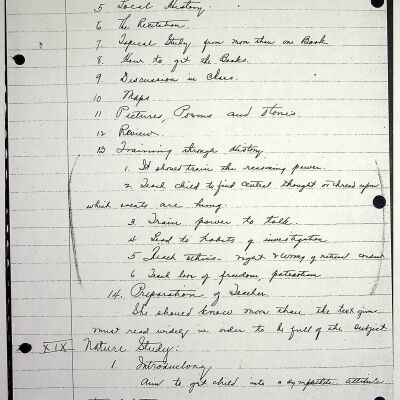 5 Local History.
6 The Recitation.
7 Topical Study from more than one Book
8. How to get the Books.
9 Discussion in Class.
10 Maps
11 Pictures, Poems and Stories.
12 Review.
13 Training through History
1. It should train the reasoning power.
2. Teach child to find central thought or thread upon
which events are hung.
3 Train power to talk.
4 Lead to habits of investigation
5 Teach ethics. right & wrong of conduct
6 Teach love of freedom, patriotism
14. Preparation of Teacher.
She should know more than the text gives
must read widely in order to be full of the subject
XIX Nature Study:
1. Introductory
Aim to get child into a sympathetic attitude